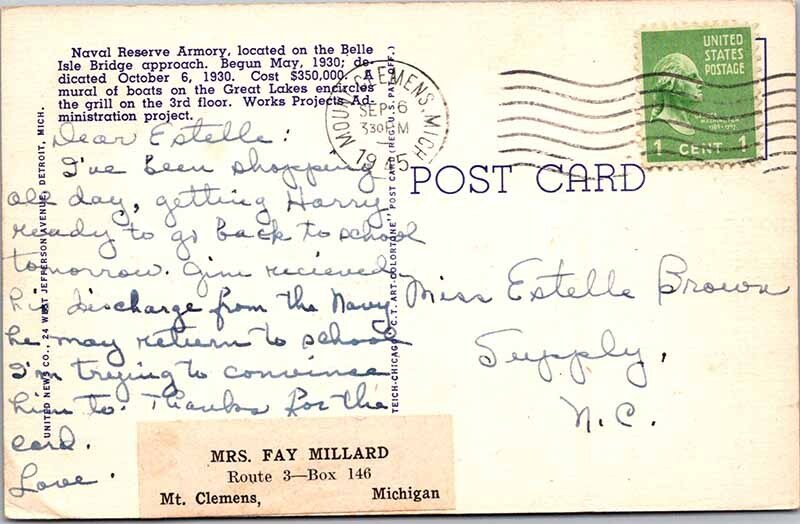 Naval Reserve Armory, located on the Belle
Isle Bridge approach. Begun May, 1930; de-
dicated October 6, 1930. Cost $350,000. A
mural of boats on the Great Lakes encircles
the grill on the 3rd floor. Works Projects Ad-
ministration project.
Dear Estelle:
I've been shopping
all day, getting Harry
ready to go back to school
tomorrow. Jim recieved
his discharge from the Navy
he may return to school
I'm trying to convince
him to. Thanks for the
card.
Love.
MRS. FAY MILLARD
Route 3—Box 146
Mt. Clemens, Michigan
UNITED NEWS CO., 24 WEST JEFFERSON AVENUE, DETROIT, MICH.
TEICH-CHICAGO "C.T. ART-COLORTONE" POST CARD (REG. U.S. PAT. OFF.)
MOUNT CLEMENS, MICH.
SEP 6
330PM
1945
UNITED
STATES
POSTAGE
WASHINGTON
1 CENT 1
POST CARD
Miss Estelle Brown
Supply,
N.C.